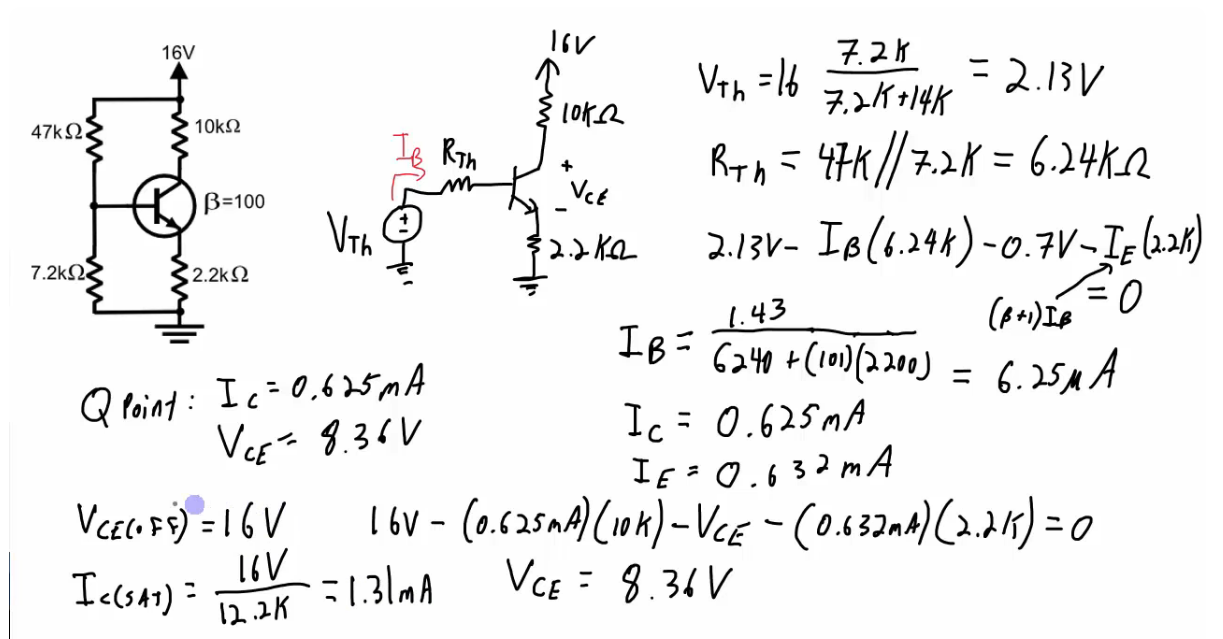 16V
47kΩ
10kΩ
β=100
7.2kΩ
2.2kΩ
16V
10KΩ
I_B
R_Th
+
V_CE
−
V_Th
+
-
2.2KΩ
V_Th = 16 7.2K / 7.2K+14K = 2.13V
R_Th = 47K//7.2K = 6.24KΩ
2.13V − I_B(6.24K) − 0.7V − I_E(2.2K)
(β+1)I_B = 0
I_B = 1.43 / 6240 + (101)(2200) = 6.25μA
I_C = 0.625mA
I_E = 0.632mA
Q Point: I_C = 0.625mA
V_CE = 8.36V
V_CE(OFF) = 16V
16V − (0.625mA)(10K) − V_CE − (0.632mA)(2.2K) = 0
I_C(SAT) = 16V / 12.2K = 1.31mA
V_CE = 8.36V